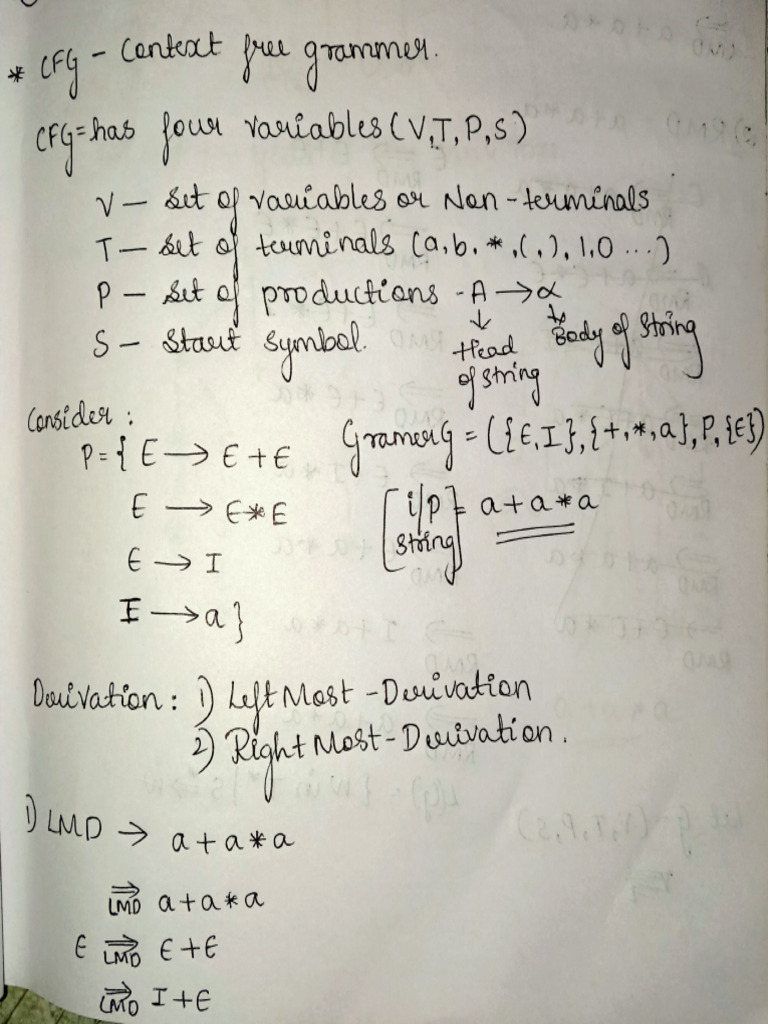 * CFG - Context free grammer.
CFG = has four variables (V,T,P,S)
V — Set of variables or Non-terminals
T — Set of terminals (a,b,*,(,),1,0 ...)
P — Set of productions - A → α
S — Start Symbol.
↓ Head of string
↓ Body of String
Consider :
P = { E → E + E
E → E * E
E → I
I → a }
Gramer G = ({E,I},{+,*,a},P,{E})
[i/p string] = a + a * a
Derivation : 1) Left Most - Derivation
2) Right Most - Derivation.
1) LMD → a + a * a
⇒ LMD a + a * a
E ⇒ LMD E + E
⇒ LMD I + E